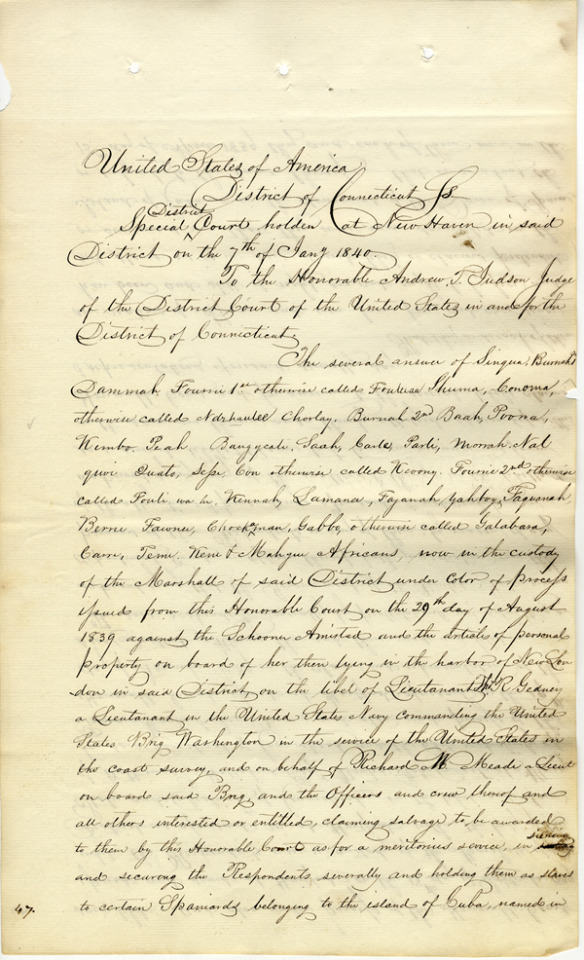 United States of America
District of Connecticut Ss
Special District Court holden at New Haven in said
District on the 7th of Jany 1840.
To the Honorable Andrew. T. Judson Judge
of the District Court of the United States in and for the
District of Connecticut
The several answer of Singua, Burnah 1st
Dammah Fourrie 1st otherwise called Shuma, Conoma,
otherwise called Choolay. Burnah 2nd Baah, Poona,
Kimbo. Peah Bangyeah. Saah, Carle, Parli, Morrah. Nal
quoi Quato, Sesse Con otherwise called Fourrie 2nd otherwise
called Kennah Lamana, Fajanah, Yahboy, Faquanah
Berrie Fawnu, Chockaman, Gabbo otherwise called Galabara,
Carri, Teme. Kene & Mahgue Africans, now in the custody
of the Marshall of said District under color of process
issued from this Honorable Court on the 29th day of August
1839 against the Schooner Amistad and the articles of personal
property on board of her then lying in the harbor of New Lon
don in said District on the libel of Lieutenant R Gedney
a Lieutenant in the United States Navy commanding the United
States Brig Washington in the service of the United States in
the coast survey, and on behalf of Richard W Meade a Lieut
on board said Brig and the Officers and crew thereof and
all others interested or entitled, claiming salvage to be awarded
to them by this Honorable Court as for a meritorious service, in seizing
and securing the Respondents severally and holding them as slaves
to certain Spaniards belonging to the island of Cuba, named in
47.